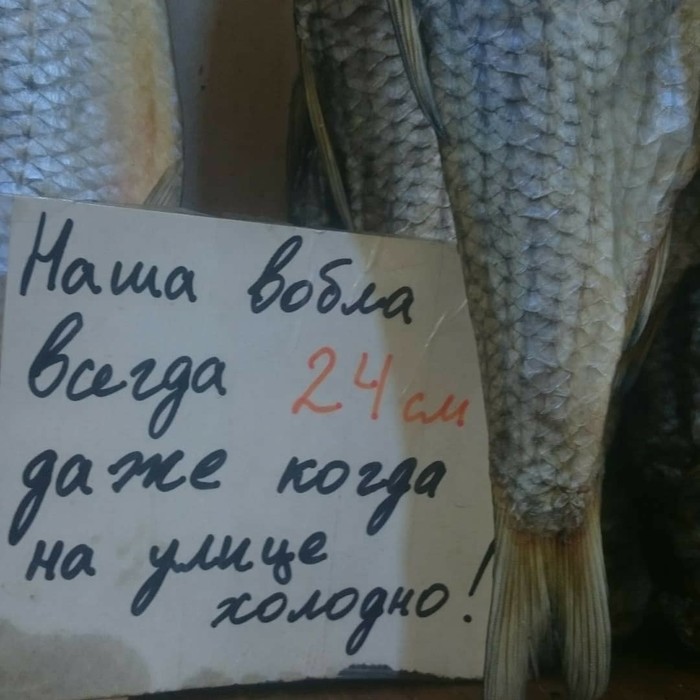 Наша вобла
всегда 24 см
даже когда
на улице
холодно!